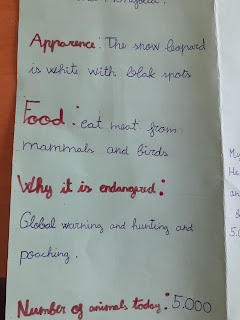 Apparence: The snow leopard
is white with blak spots
Food: eat meat from
mammals and birds
Why it is endangered:
Global warning and hunting and
poaching.
Number of animals today: 5.000